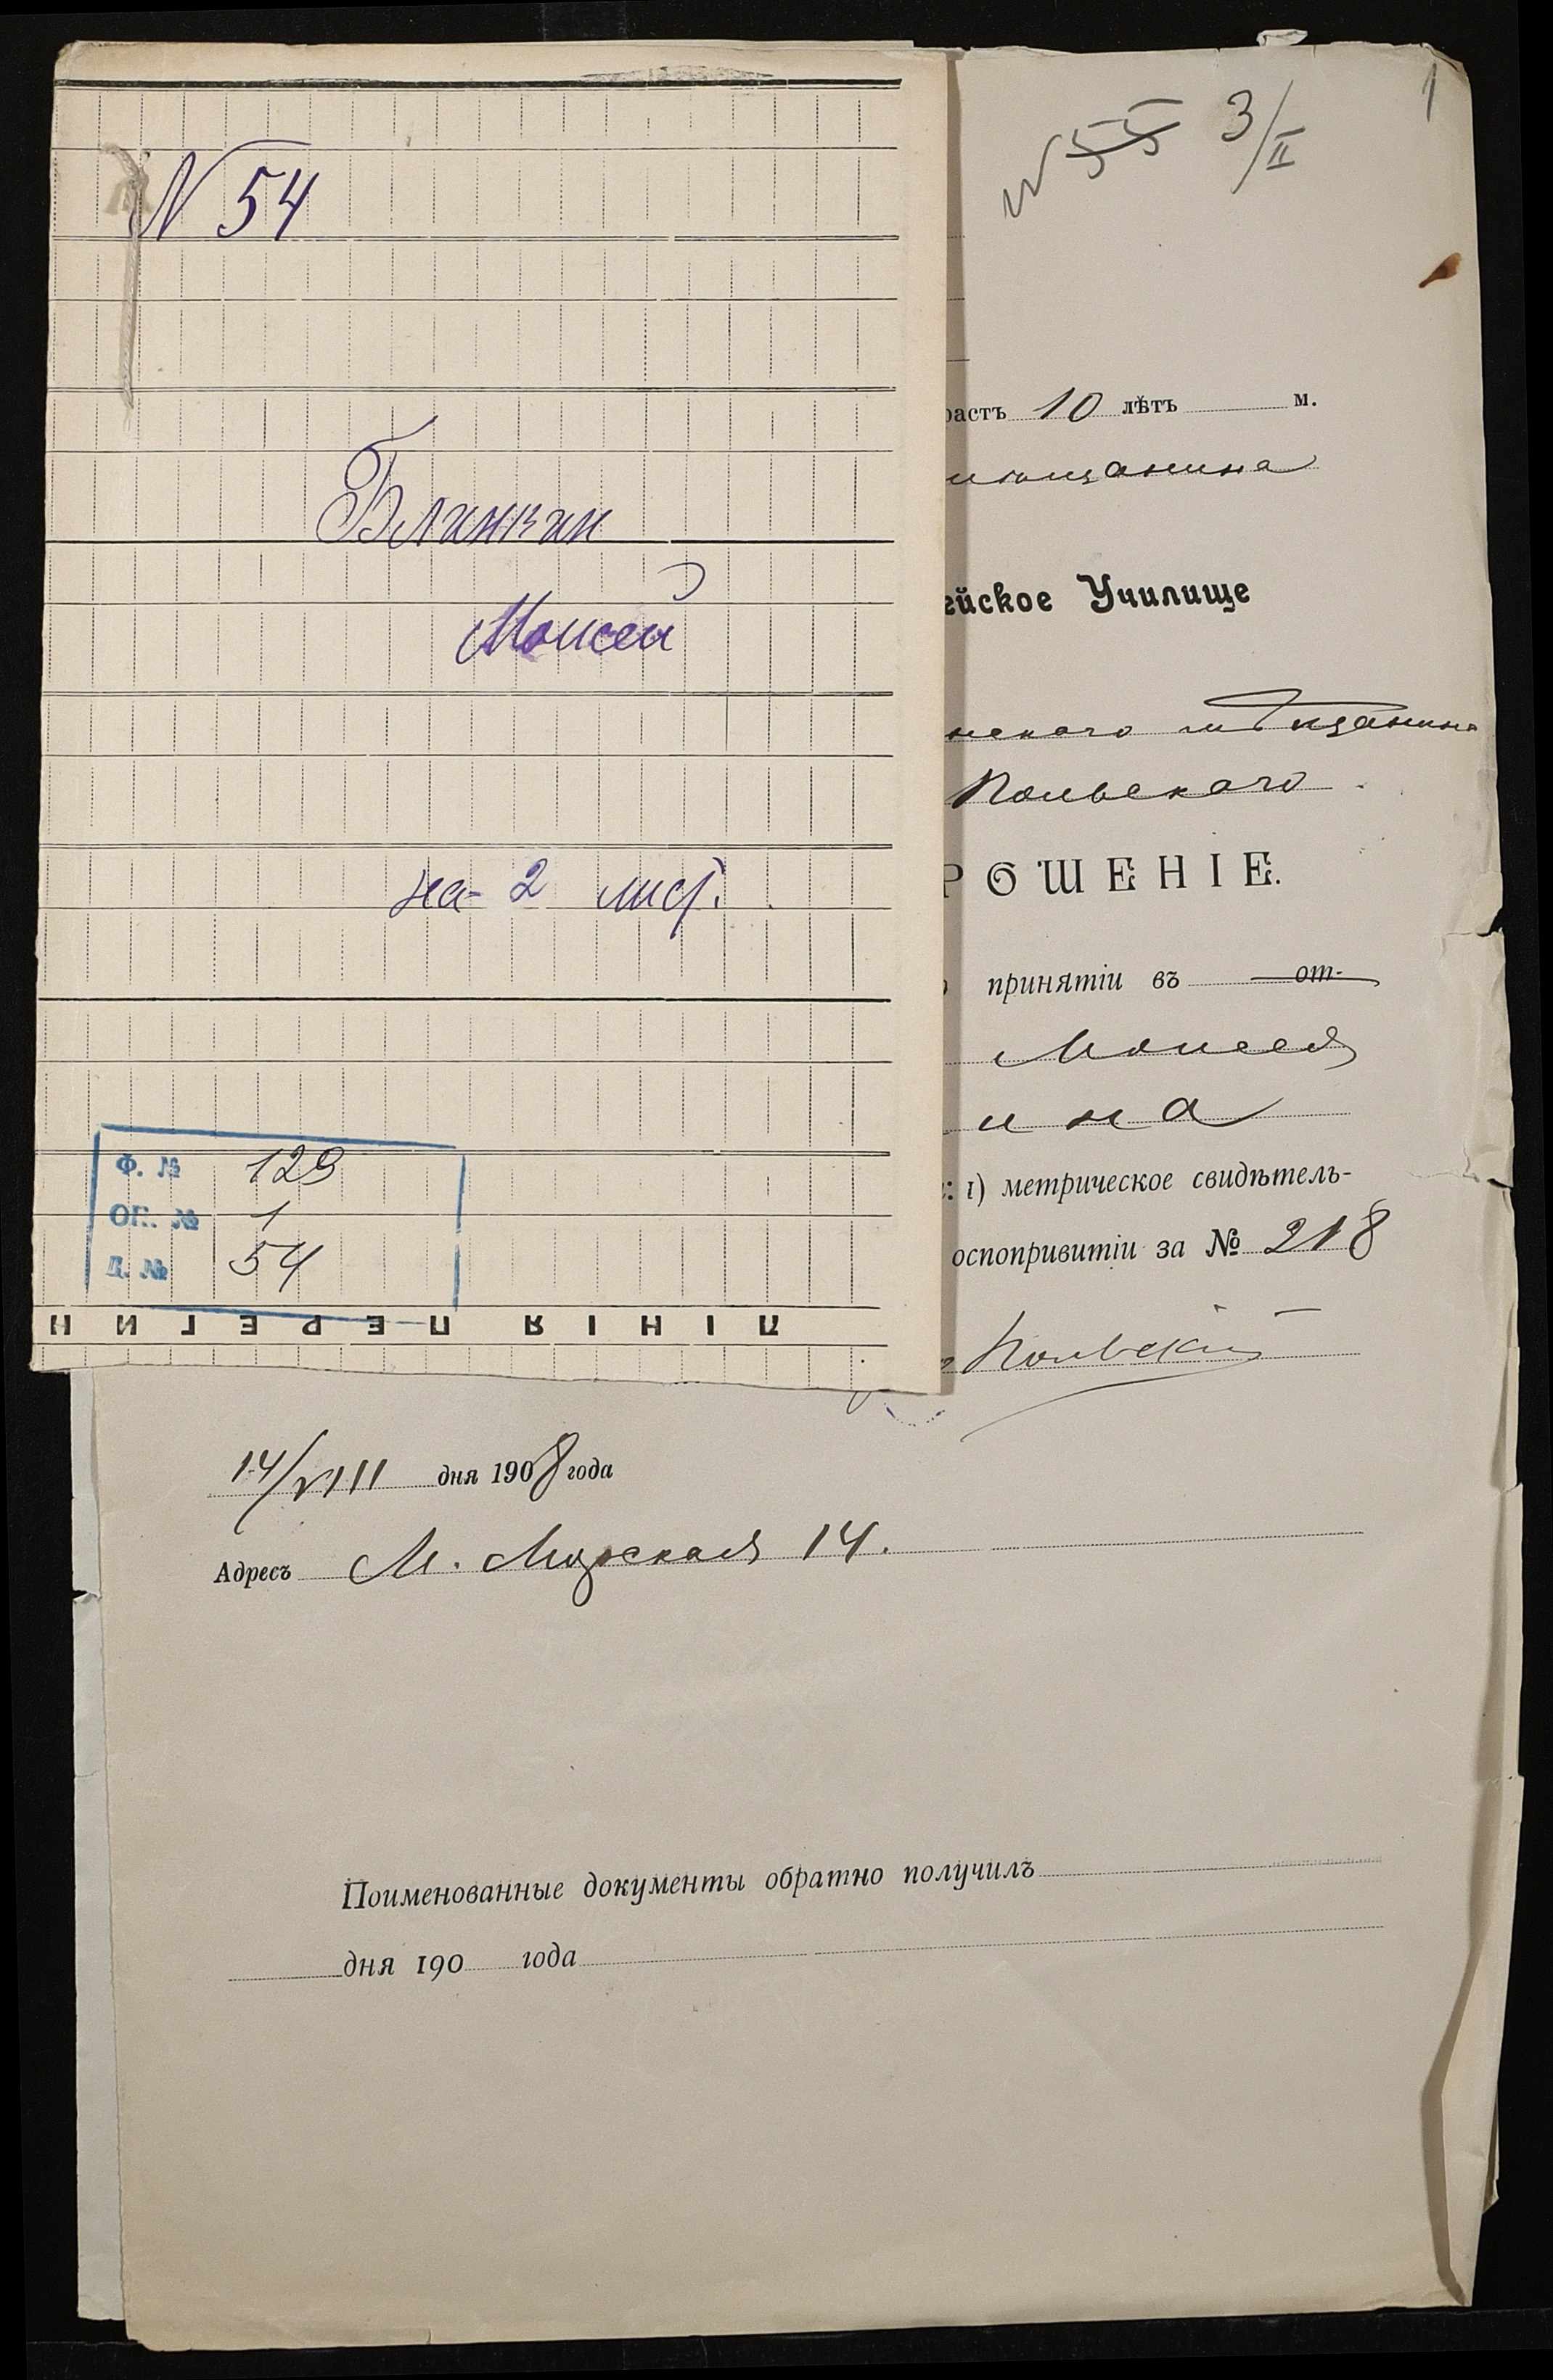 N 54
Блинкин
Моисей
на 2 лист.
Ф. № 129
ОП. № 1
Д. № 54
ЛІНІЯ ПЕРЕГИН
1
N 55 3/II
растъ 10 лѣтъ м.
мѣщанина
ейское Училище
нского мѣщанина
Польскаго
РОШЕНІЕ.
принятіи въ от-
Моисея
ина
: 1) метрическое свидѣтель-
оспопривитіи за № 218
Польскій
14/VIII дня 1908 года
Адресъ М. Морская 14.
Поименованные документы обратно получилъ
дня 190 года